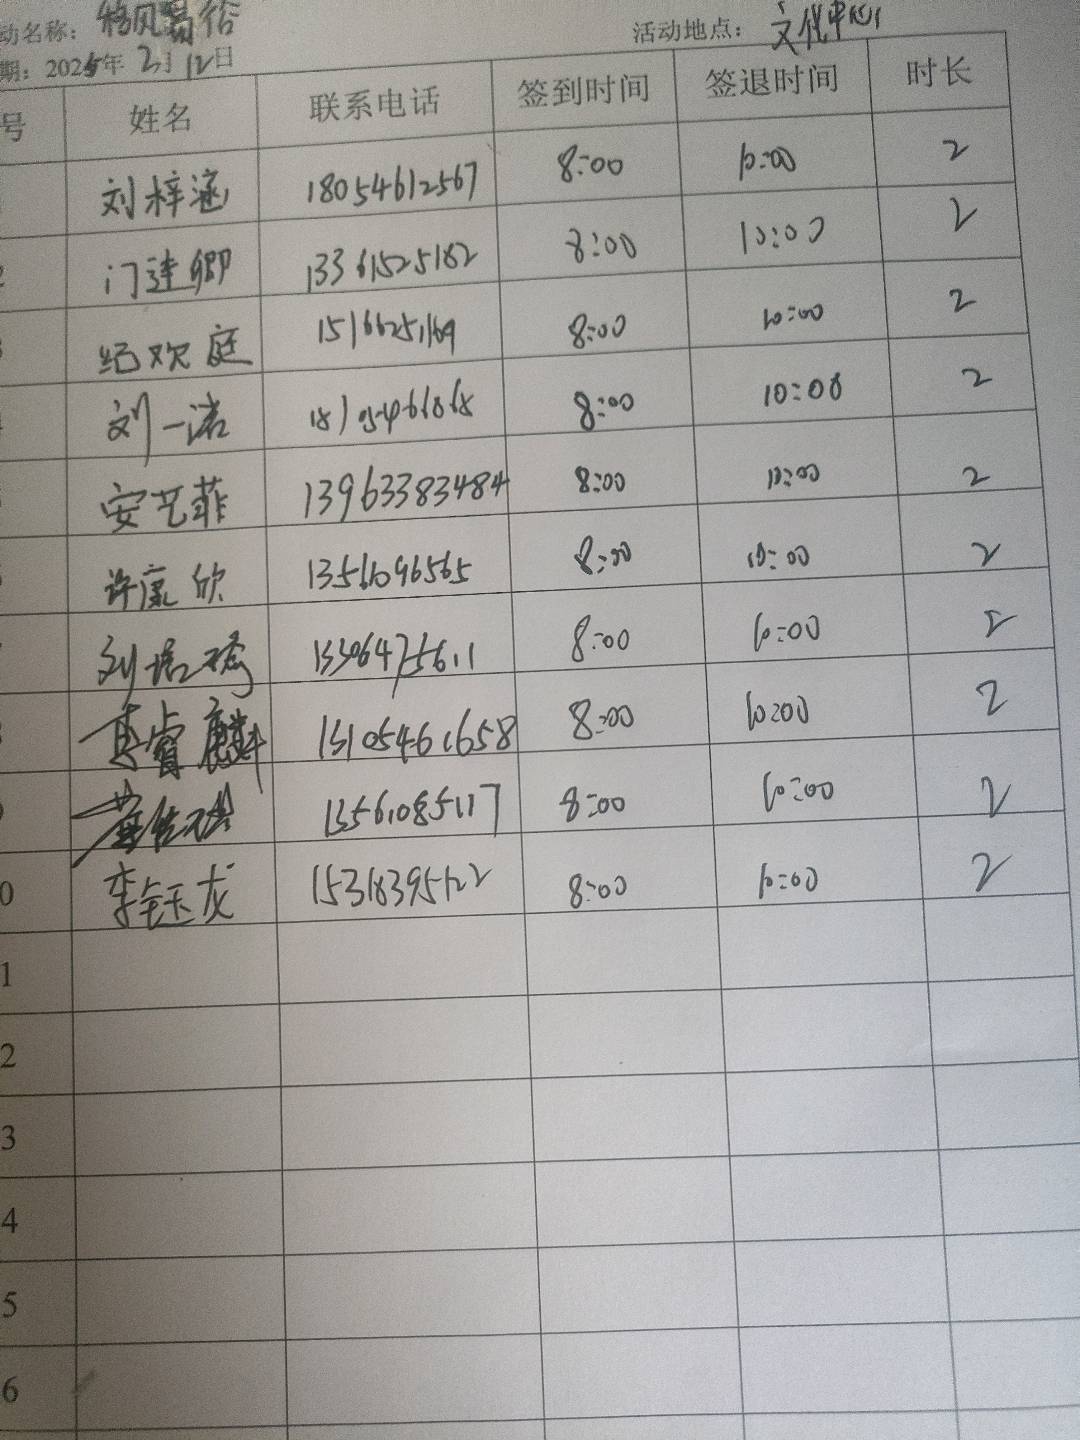 动名称：移风易俗 活动地点：文化中心
期：2025年2月12日
号 姓名 联系电话 签到时间 签退时间 时长
刘梓涵 18054612567 8:00 10:00 2
2 门建卿 13361525182 8:00 10:00 2
3 纪欢庭 15166251169 8:00 10:00 2
刘一诺 8:00 10:00 2
安艺菲 13963383484 8:00 10:00 2
许康欣 13561096565 8:00 10:00 2
刘 13306475611 8:00 10:00 2
8 睿麒 13105461658 8:00 10:00 2
9 13561085117 8:00 10:00 2
0 李钰龙 15318395122 8:00 10:00 2
1
2
3
4
5
6